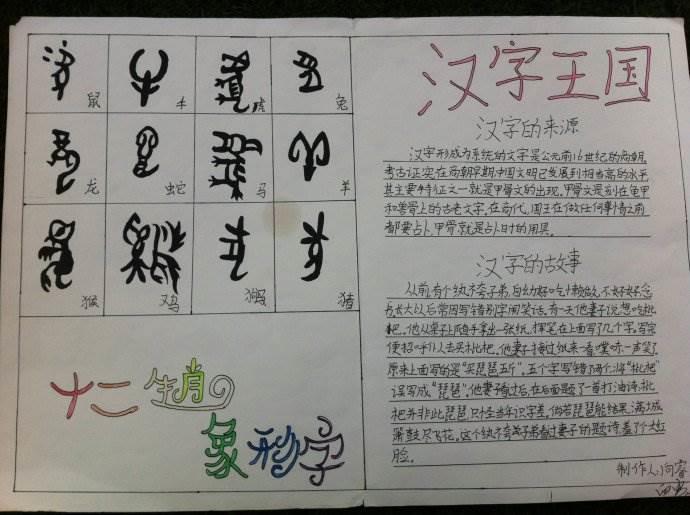 鼠 牛 虎 兔
龙 蛇 马 羊
猴 鸡 狗 猪
十二生肖
象形字
汉字王国
汉字的来源
汉字形成为系统的文字是公元前16世纪的商朝。
考古证实,在商朝早期,中国文明已发展到相当高的水平,
其主要特征之一就是甲骨文的出现。甲骨文是刻在龟甲
和兽骨上的古老文字。在商代,国王在做任何事情之前
都要占卜,甲骨就是占卜时的用具。
汉字的故事
从前,有个纨绔子弟,自幼好吃懒做,不好好念
书,长大以后常因写错别字闹笑话。有一天他妻子说想吃枇
杷。他从桌子上随手拿出一张纸,挥笔在上面写了几个字。写完
便招呼仆人去买枇杷。他妻子接过纸来一看,噗哧一声笑了,
原来上面写的是“买琵琶五斤”,五个字写错了两个,将“枇杷”
误写成“琵琶”。他妻子看过后,在后面题了一首打油诗:枇
杷并非此琵琶,只怪当年识字差。倘若琵琶能结果,满城
箫鼓尽飞花。这个纨绔子弟看过妻子的题诗,羞了个大红
脸。
制作人:向睿